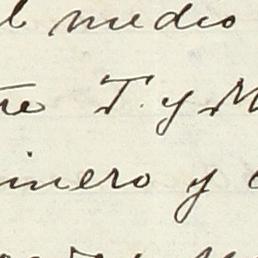 l medio
tre T. y M
inero y